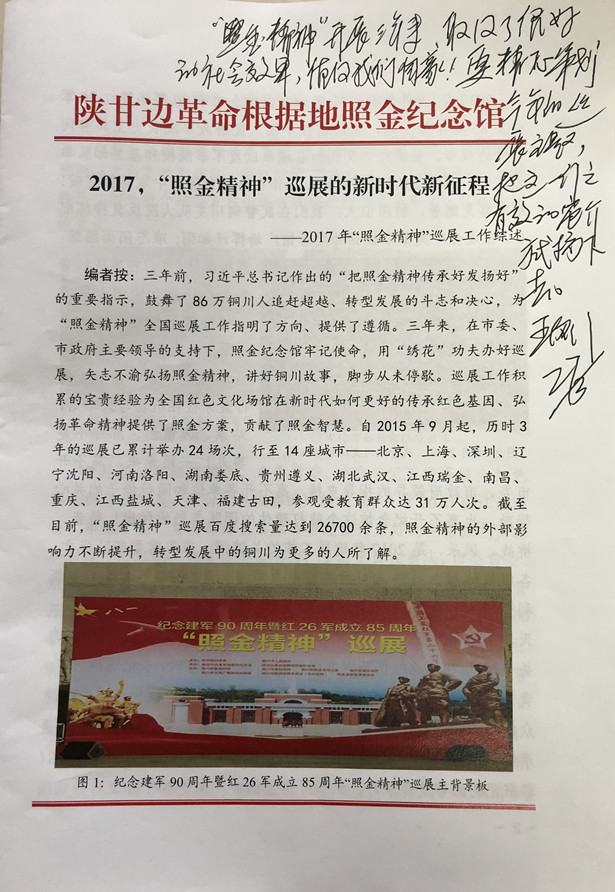 “照金精神”开展三年来，取得了很好
的社会效果，值得我们
要精心策划
今年的巡
展主题，
有效
陕甘边革命根据地照金纪念馆
2017，“照金精神”巡展的新时代新征程
——2017 年“照金精神”巡展工作综述
编者按：三年前，习近平总书记作出的“把照金精神传承好发扬好”
的重要指示，鼓舞了 86 万铜川人追赶超越、转型发展的斗志和决心，为
“照金精神”全国巡展工作指明了方向、提供了遵循。三年来，在市委、
市政府主要领导的支持下，照金纪念馆牢记使命，用“绣花”功夫办好巡
展，矢志不渝弘扬照金精神，讲好铜川故事，脚步从未停歇。巡展工作积
累的宝贵经验为全国红色文化场馆在新时代如何更好的传承红色基因、弘
扬革命精神提供了照金方案，贡献了照金智慧。自 2015 年 9 月起，历时 3
年的巡展已累计举办 24 场次，行至 14 座城市——北京、上海、深圳、辽
宁沈阳、河南洛阳、湖南娄底、贵州遵义、湖北武汉、江西瑞金、南昌、
重庆、江西盐城、天津、福建古田，参观受教育群众达 31 万人次。截至
目前，“照金精神”巡展百度搜索量达到 26700 余条，照金精神的外部影
响力不断提升，转型发展中的铜川为更多的人所了解。
八一
纪念建军 90 周年暨红 26 军成立 85 周年
“照金精神”巡展
图 1：纪念建军 90 周年暨红 26 军成立 85 周年“照金精神”巡展主背景板